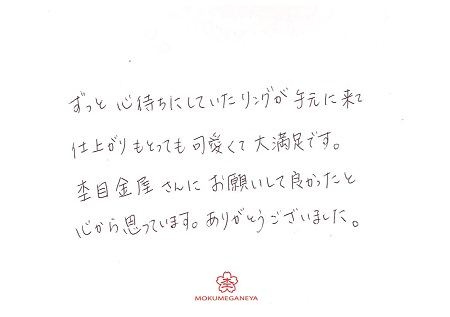 ずっと心待ちにしていたリングが手元に来て
仕上がりもとっても可愛くて大満足です。
杢目金屋さんにお願いして良かったと
心から思っています。ありがとうございました。
杢
MOKUMEGANEYA